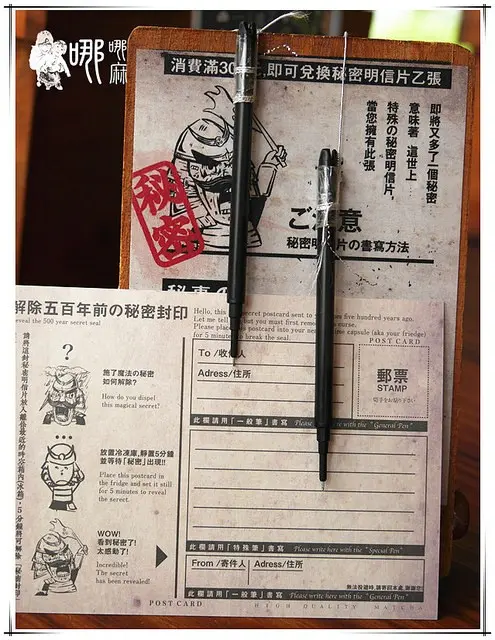 哪哪麻
消費滿30 ,即可兌換秘密明信片乙張
即將又多了一個秘密
意味著 這世上
特殊の秘密明信片,
當您擁有此張
秘密
ご 意
秘密明 片の書寫方法
解除五百年前の秘密封印
reveal the 500 year secret seal
Hello, this secret postcard sent to five hundred years ago.
Let me tell but you must first remo curse.
Please place postcard into your nea me capsule (aka your friedge)
for 5 minutes to break the seal.
POST CARD
?
施了魔法の秘密
如何解除?
How do you dispel
this magical secret?
放置冷凍庫,靜置5分鐘
並等待「秘密」出現!!
Place this postcard in
the fridge and set it still
for 5 minutes to reveal
the secret.
WOW!
看到秘密了!
太感動了!
Incredible!
The secret
has been revealed!
To /收 人
Adress/住所
郵票
STAMP
此欄請用「一般筆」書寫 Please write here with the "General Pen"
此欄請用「特殊筆」書寫 Please write here with the "Special Pen"
From /寄件人 Adress/住所
無法投遞時,請寄回本處,謝謝您!
此欄請用「一般筆」書寫 Please write here with the "General Pen"
POST CARD
HIGH QUALITY